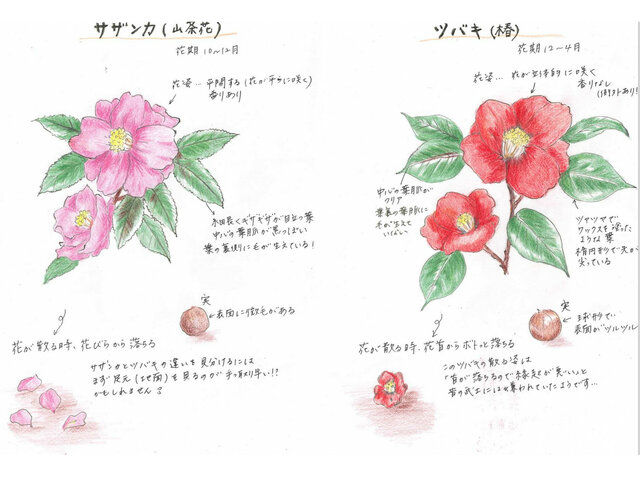 サザンカ(山茶花)
花期 10〜12月
花姿… 平開する(花が平らに咲く)
香りあり
細長くギザギザが目立つ葉
中心の葉脈が黒っぽい
葉の裏側に毛が生えている!
実
表面に微毛がある
花が散る時、花びらから落ちる
サザンカとツバキの違いを見分けるには
まず足元(地面)を見るのが手っ取り早い!?
かもしれません
ツバキ(椿)
花期 12〜4月
花姿… 花が立体的に咲く
香りなし
中心の葉脈が
クリア
葉裏の葉脈に
毛が生えて
いない
ツヤツヤで
ワックスを塗った
ような葉
楕円形で先が
尖っている
実
球形で
表面がツルツル
花が散る時、花首からボトッと落ちる
このツバキの散る姿は
「首が落ちるので縁起が悪い」と
昔の武士には嫌われていたようです…